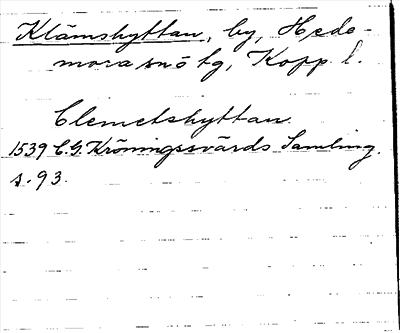 Klämshyttan, by, Hede-
mora snö tg, Kopp. l.
Clemetshyttan.
1539 C.G. Kröningssvärds Samling.
s. 93.